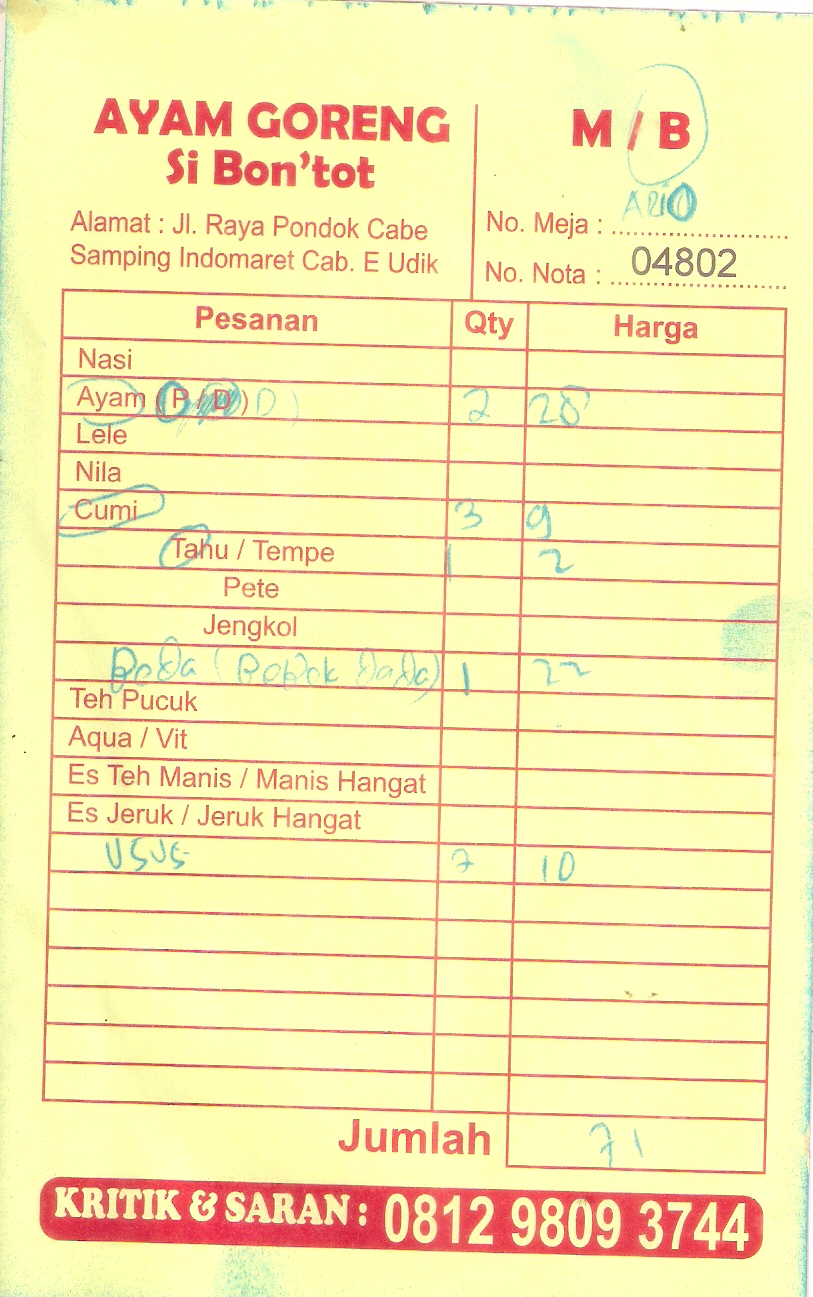 AYAM GORENG
Si Bon'tot
Alamat : Jl. Raya Pondok Cabe
Samping Indomaret Cab. E Udik
M / B
No. Meja :
No. Nota : 04802
Pesanan Qty Harga
Nasi
Ayam ( P / D ) D ) 2 28
Lele
Nila
Cumi 3 9
Tahu / Tempe 1 2
Pete
Jengkol
(        Dada) 1 22
Teh Pucuk
Aqua / Vit
Es Teh Manis / Manis Hangat
Es Jeruk / Jeruk Hangat
USUS 7 10
Jumlah 71
KRITIK & SARAN : 0812 9809 3744